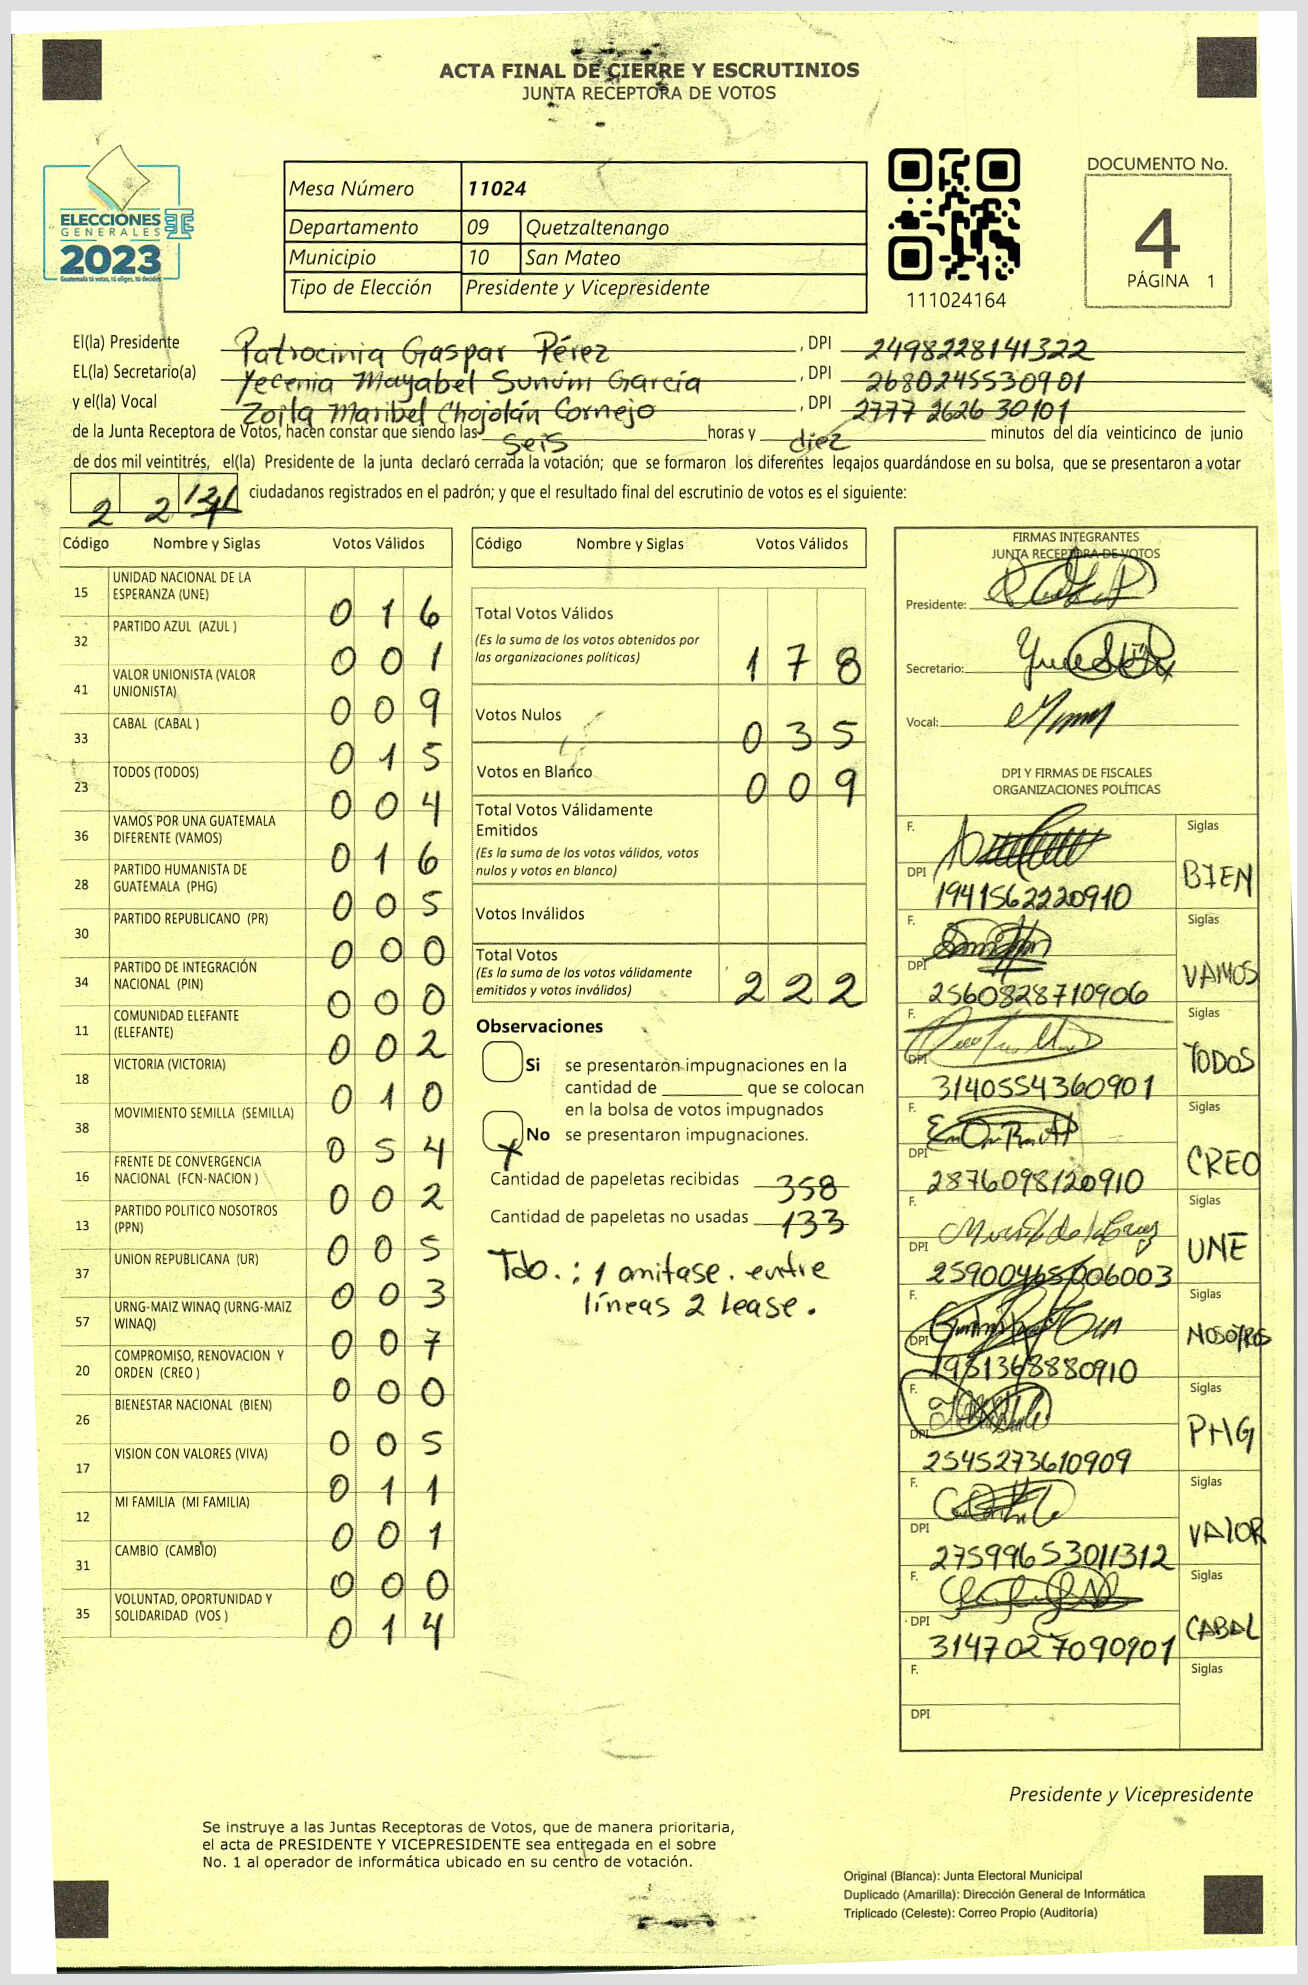 ACTA FINAL DE CIERRE Y ESCRUTINIOS
JUNTA RECEPTORA DE VOTOS
ELECCIONES
GENERALES
2023
Guatemala tú votas, tú eliges, tú decides
Mesa Número 11024
Departamento 09 Quetzaltenango
Municipio 10 San Mateo
Tipo de Elección Presidente y Vicepresidente
111024164
DOCUMENTO No.
4
PÁGINA 1
El(la) Presidente Patrocinia Gaspar Pérez, DPI 2498228141322
EL(la) Secretario(a) Yecenia Mayabel Sunúm García, DPI 2680245530901
y el(la) Vocal Zoila Maribel Chojolán Cornejo, DPI 2777 2626 30101
de la Junta Receptora de Votos, hacen constar que siendo las seis horas y diez minutos del día veinticinco de junio
de dos mil veintitrés, el(la) Presidente de la junta declaró cerrada la votación; que se formaron los diferentes legajos guardándose en su bolsa, que se presentaron a votar
2 2 ciudadanos registrados en el padrón; y que el resultado final del escrutinio de votos es el siguiente:
Código Nombre y Siglas Votos Válidos
15 UNIDAD NACIONAL DE LA ESPERANZA (UNE) 0 1 6
32 PARTIDO AZUL (AZUL ) 0 0 1
41 VALOR UNIONISTA (VALOR UNIONISTA) 0 0 9
33 CABAL (CABAL ) 0 1 5
23 TODOS (TODOS) 0 0 4
36 VAMOS POR UNA GUATEMALA DIFERENTE (VAMOS) 0 1 6
28 PARTIDO HUMANISTA DE GUATEMALA (PHG) 0 0 5
30 PARTIDO REPUBLICANO (PR) 0 0 0
34 PARTIDO DE INTEGRACIÓN NACIONAL (PIN) 0 0 0
11 COMUNIDAD ELEFANTE (ELEFANTE) 0 0 2
18 VICTORIA (VICTORIA) 0 1 0
38 MOVIMIENTO SEMILLA (SEMILLA) 0 5 4
16 FRENTE DE CONVERGENCIA NACIONAL (FCN-NACION ) 0 0 2
13 PARTIDO POLITICO NOSOTROS (PPN) 0 0 5
37 UNION REPUBLICANA (UR) 0 0 3
57 URNG-MAIZ WINAQ (URNG-MAIZ WINAQ) 0 0 7
20 COMPROMISO, RENOVACION Y ORDEN (CREO ) 0 0 0
26 BIENESTAR NACIONAL (BIEN) 0 0 5
17 VISION CON VALORES (VIVA) 0 1 1
12 MI FAMILIA (MI FAMILIA) 0 0 1
31 CAMBIO (CAMBIO) 0 0 0
35 VOLUNTAD, OPORTUNIDAD Y SOLIDARIDAD (VOS ) 0 1 4
Código Nombre y Siglas Votos Válidos
Total Votos Válidos
(Es la suma de los votos obtenidos por
las organizaciones políticas) 1 7 8
Votos Nulos 0 3 5
Votos en Blanco 0 0 9
Total Votos Válidamente
Emitidos
(Es la suma de los votos válidos, votos
nulos y votos en blanco)
Votos Inválidos
Total Votos
(Es la suma de los votos válidamente
emitidos y votos inválidos) 2 2 2
Observaciones
Si se presentaron impugnaciones en la
cantidad de ________ que se colocan
en la bolsa de votos impugnados
X No se presentaron impugnaciones.
Cantidad de papeletas recibidas 358
Cantidad de papeletas no usadas 133
Tdo. : 1 omitase. entre
líneas 2 lease.
FIRMAS INTEGRANTES
JUNTA RECEPTORA DE VOTOS
Presidente:
Secretario:
Vocal:
DPI Y FIRMAS DE FISCALES
ORGANIZACIONES POLÍTICAS
F. Siglas
DPI 1941562220910 BIEN
F. Siglas
DPI 2560828710906 VAMOS
F. Siglas
DPI 3140554360901 TODOS
F. Siglas
DPI 2876098120910 CREO
F. Siglas
DPI 25900465006003 UNE
F. Siglas
DPI 1981368880910 NOSOTROS
F. Siglas
DPI 2545273610909 PHG
F. Siglas
DPI 2759965301|312 VALOR
F. Siglas
DPI 3147027090901 CABAL
F. Siglas
DPI
Presidente y Vicepresidente
Se instruye a las Juntas Receptoras de Votos, que de manera prioritaria,
el acta de PRESIDENTE Y VICEPRESIDENTE sea entregada en el sobre
No. 1 al operador de informática ubicado en su centro de votación.
Original (Blanca): Junta Electoral Municipal
Duplicado (Amarilla): Dirección General de Informática
Triplicado (Celeste): Correo Propio (Auditoría)